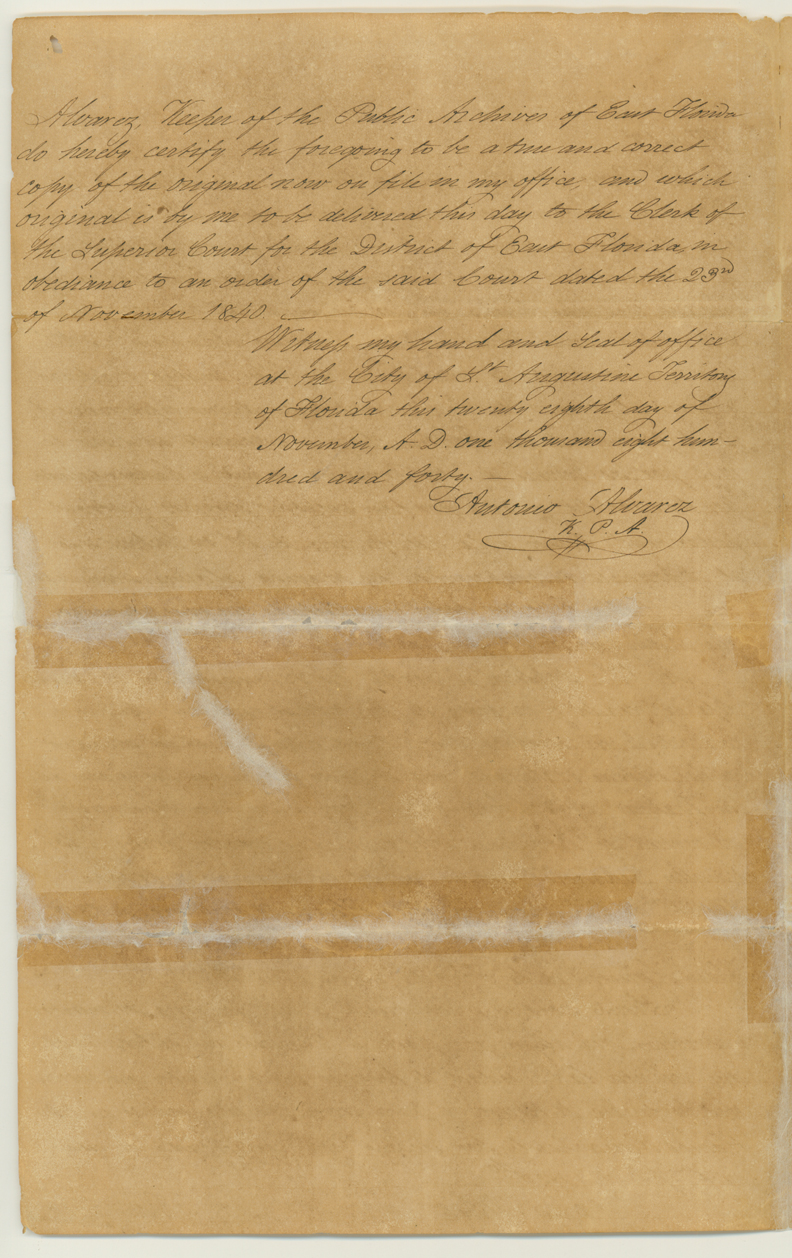 Alvarez, Keeper of the Public Archives of East Florida
do hereby certify the foregoing to be a true and correct
copy of the original now on file in my office, and which
original is by me to be delivered this day to the Clerk of
the Superior Court for the District of East Florida, in
obediance to an order of the said Court dated the 23rd
of November 1840.
Witness my hand and Seal of office
at the City of St. Augustine Territory
of Florida this twenty eighth day of
November, A. D. one thousand eight hun-
dred and forty. —
Antonio Alvarez
K. P. A